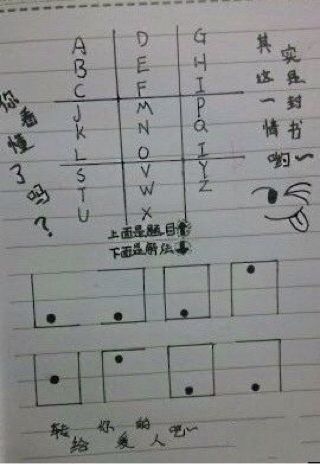 A D G
B E H
C F I
J M P
K N Q
L O I
S V Y
T W Z
U X
其实
这是
一封
情书
哟~
你看懂了吗?
上面是题目
下面是解法
转给你的爱人吧~